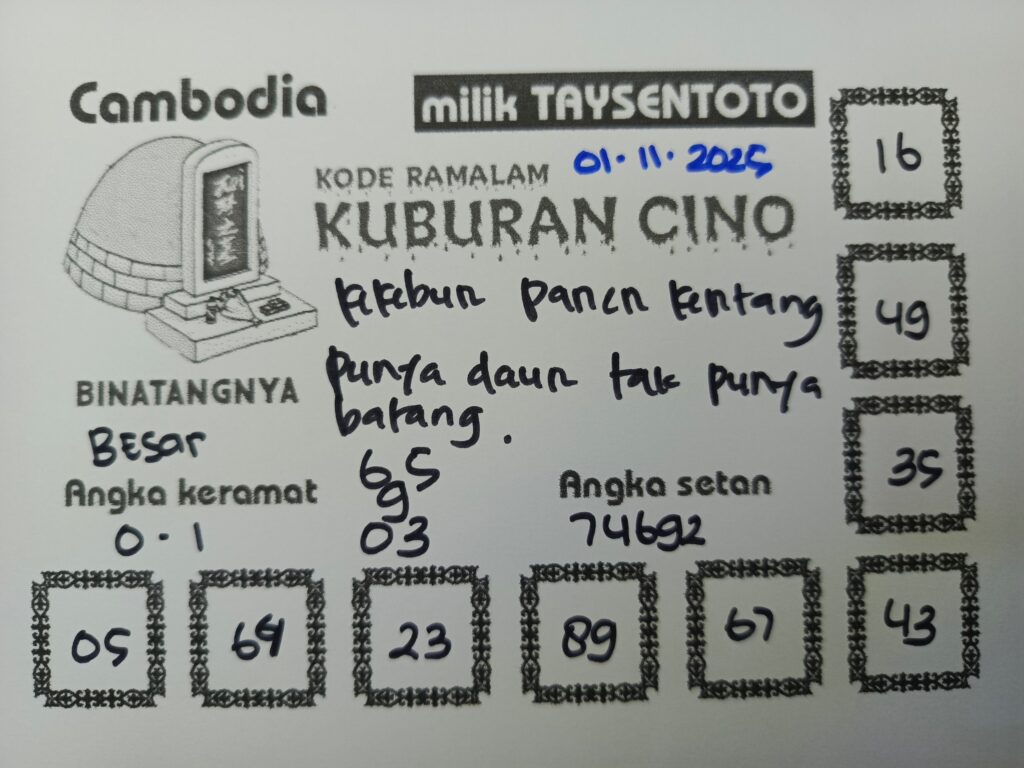 Cambodia
milik TAYSENTOTO
01.11.2025
KODE RAMALAM
KUBURAN CINO
kekebun panen kentang
punya daun tak punya
batang.
BINATANGNYA
BESar
Angka keramat
0.1
65
9
03
Angka setan
74692
16
49
35
05
69
23
89
67
43